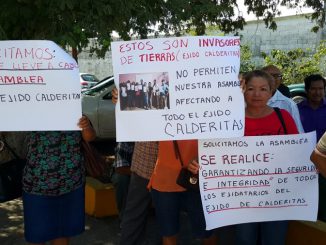 SOLICITAMOS:
SE LLEVE A CABO
ASAMBLEA
EJIDO CALDERITAS
ESTOS SON INVASORES
DE TIERRAS (EJIDO CALDERITAS)
NO PERMITEN
NUESTRA ASAMBLEA
AFECTANDO A
TODO EL EJIDO
CALDERITAS
SOLICITAMOS LA ASAMBLEA
SE REALICE:
GARANTIZANDO LA SEGURIDAD
E INTEGRIDAD" DE TODOS
LOS EJIDATARIOS DEL
EJIDO DE CALDERITAS